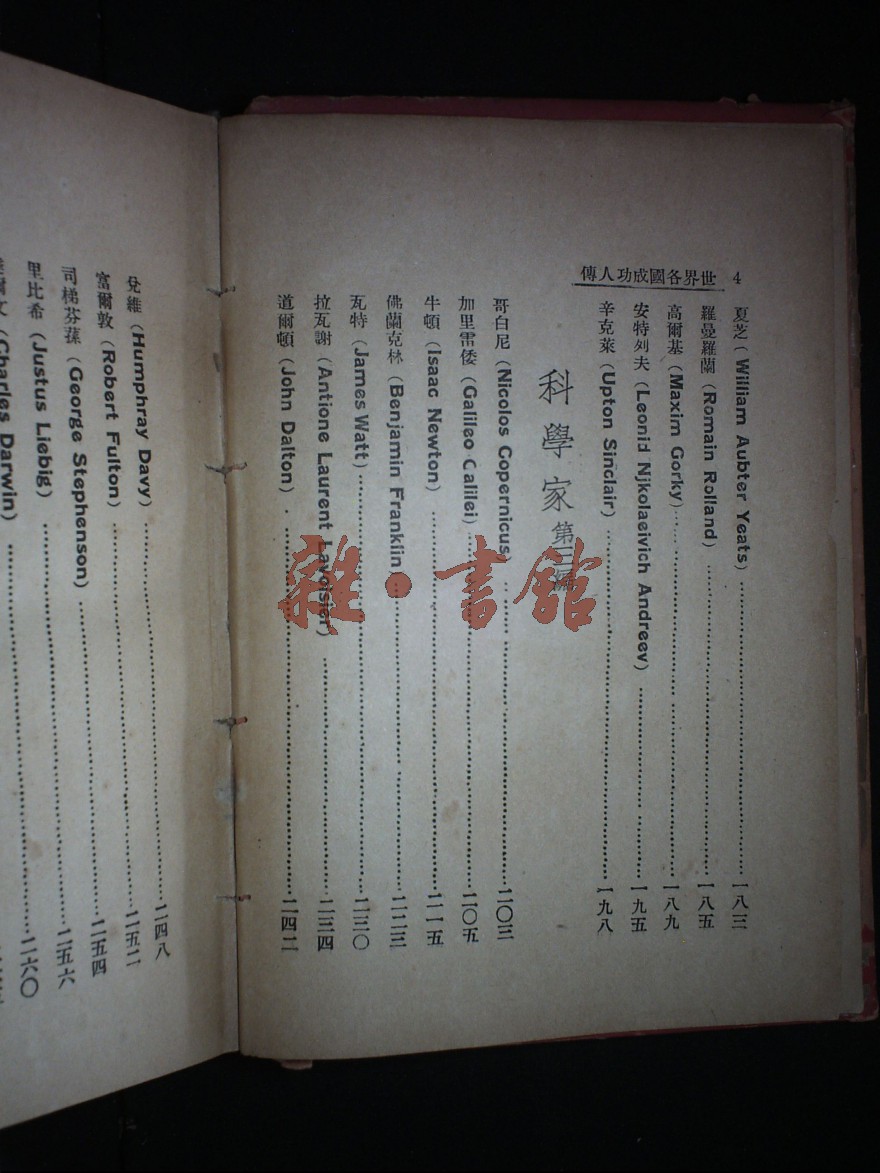 世界各國成功人傳 4
夏芝 (William Aubter Yeats) 一八三
羅曼羅蘭 (Romain Rolland) 一八五
高爾基 (Maxim Gorky) 一八九
安特列夫 (Leonid Njkolaeivich Andreev) 一九五
辛克萊 (Upton Sinclair) 一九八
科學家 第三編
哥白尼 (Nicolos Copernicus) 二〇三
加里雷倭 (Galileo Calilei) 二〇五
牛頓 (Isaac Newton) 二一五
佛蘭克林 (Benjamin Franklin) 二二三
瓦特 (James Watt) 二三〇
拉瓦謝 (Antione Laurent Lavoisier) 二三四
道爾頓 (John Dalton) 二四二
兌維 (Humphray Davy) 二四八
富爾敦 (Robert Fulton) 二五二
司梯芬蓀 (George Stephenson) 二五四
里比希 (Justus Liebig) 二五六
爾文 (Charles Darwin) 二六〇
雜·書館